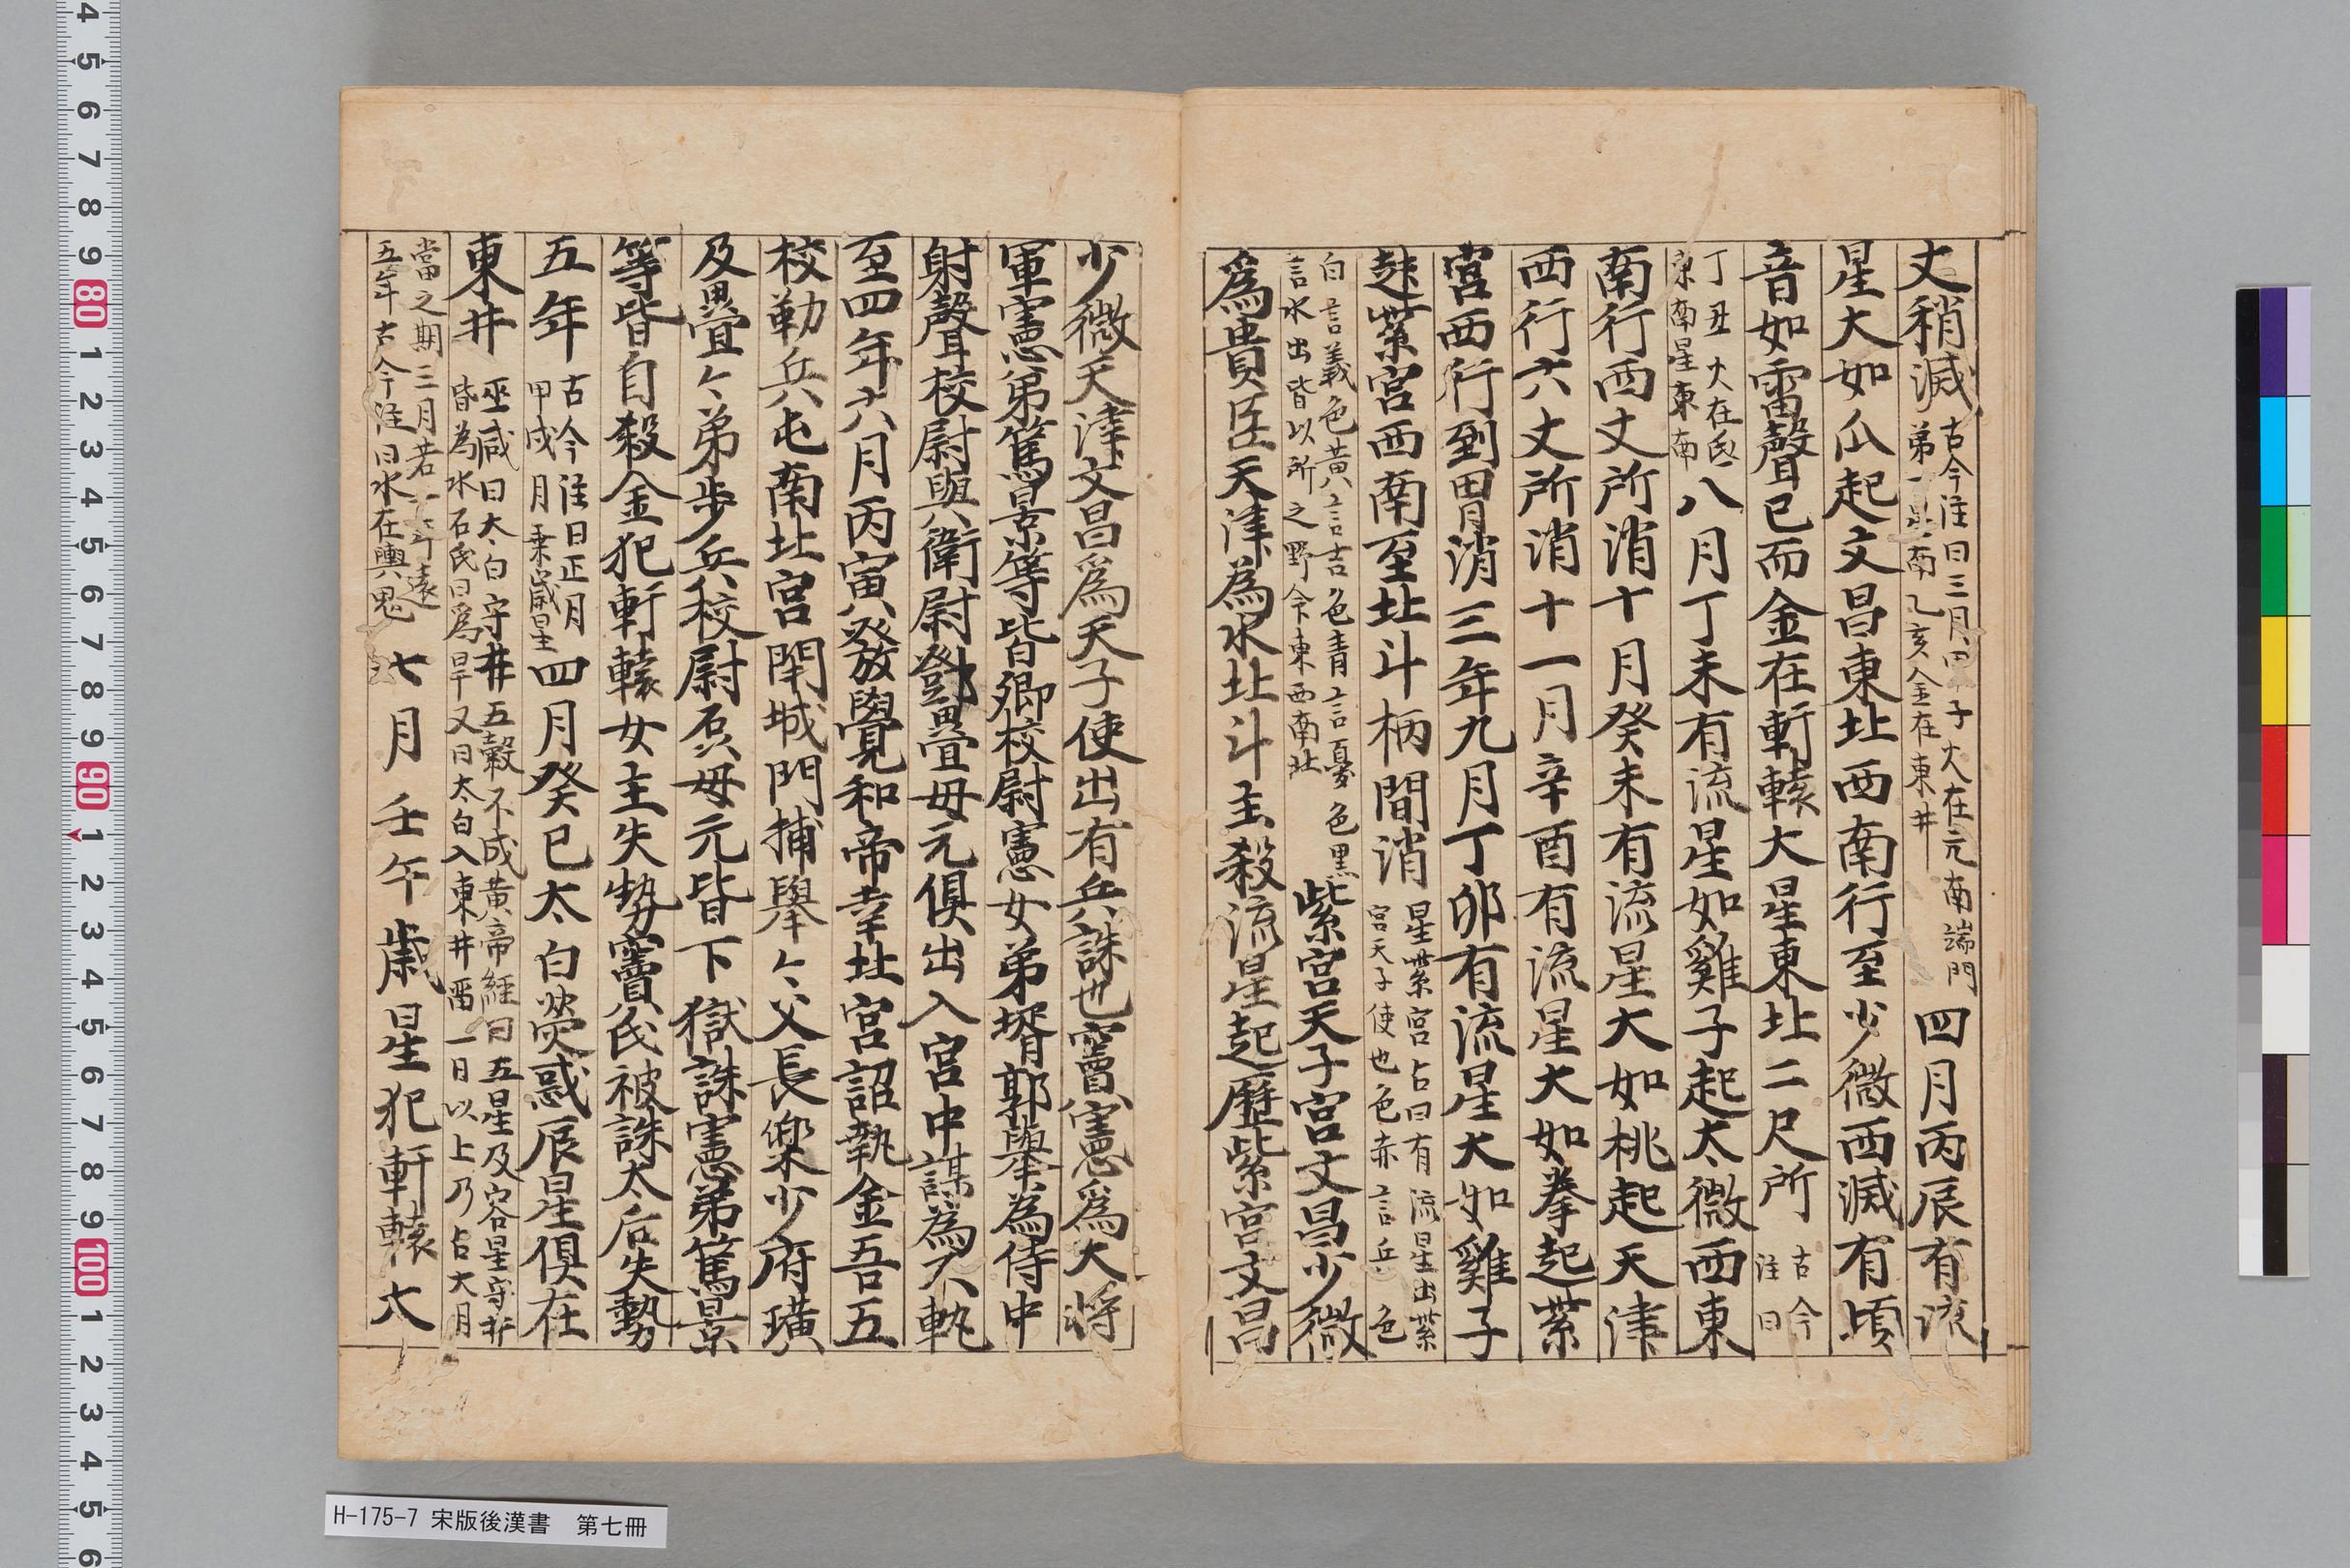 丈稍滅古今注曰三月甲子火在亢南端門第一星南乙亥金在東井四月丙辰有流
星大如瓜起文昌東北西南行至少微西滅有頃
音如雷聲已而金在軒轅大星東北二尺所古今注曰
丁丑火在氐東南星東南八月丁未有流星如雞子起太微西東
南行四丈所消十月癸未有流星大如桃起天津
西行六丈所消十一月辛酉有流星大如拳起紫
宮西行到胃消三年九月丁卯有流星大如雞子
起紫宮西南至北斗柄間消星紫宮占曰有流星出紫宮天子使也色赤言兵色
白言義色黃言吉色青言憂色黑言水出皆以所之野命東西南北紫宮天子宮文昌少微
爲貴臣天津爲水北斗主殺流星起歷紫宮文昌
少微天津文昌爲天子使出有兵誅也竇憲爲大將
軍憲弟篤景等皆卿校尉憲女弟壻郭舉為侍中
射聲校尉與衛尉鄧疊母元俱出入宮中謀為不軌
至四年六月丙寅發覺和帝幸北宮詔執金吾五
校勒兵屯南北宮閉城門捕舉々父長樂少府璜
及疊々弟步兵校尉磊母元皆下獄誅憲弟篤景
等皆自殺金犯軒轅女主失勢竇氏被誅太后失勢
五年古今注曰正月甲戌月乘歲星四月癸巳太白熒惑辰星俱在
東井巫咸曰太白守井五穀不成黃帝經曰五星及客星守井皆為水石氏曰爲旱又曰太白入東井留一日以上乃占大月
當之期三月若一年遠五年古今注曰水在輿鬼七月壬午歲星犯軒轅大
H-175-7 宋版後漢書 第七冊